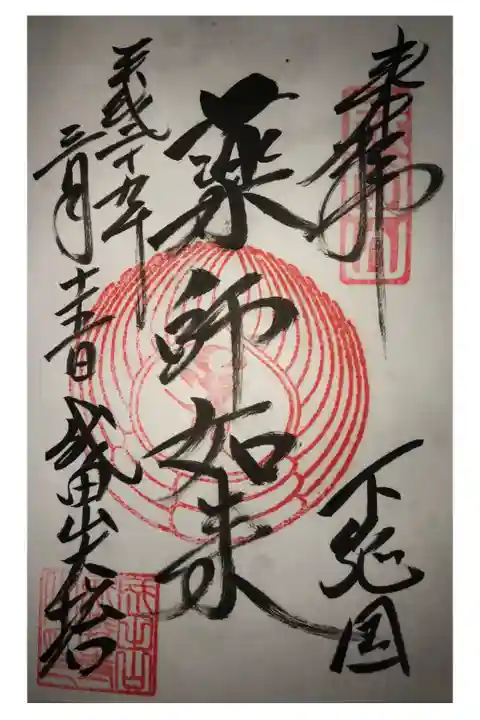 奉拝
下総国
薬師如来
平成二十九年
三月十五日 成田山大塔
成田山